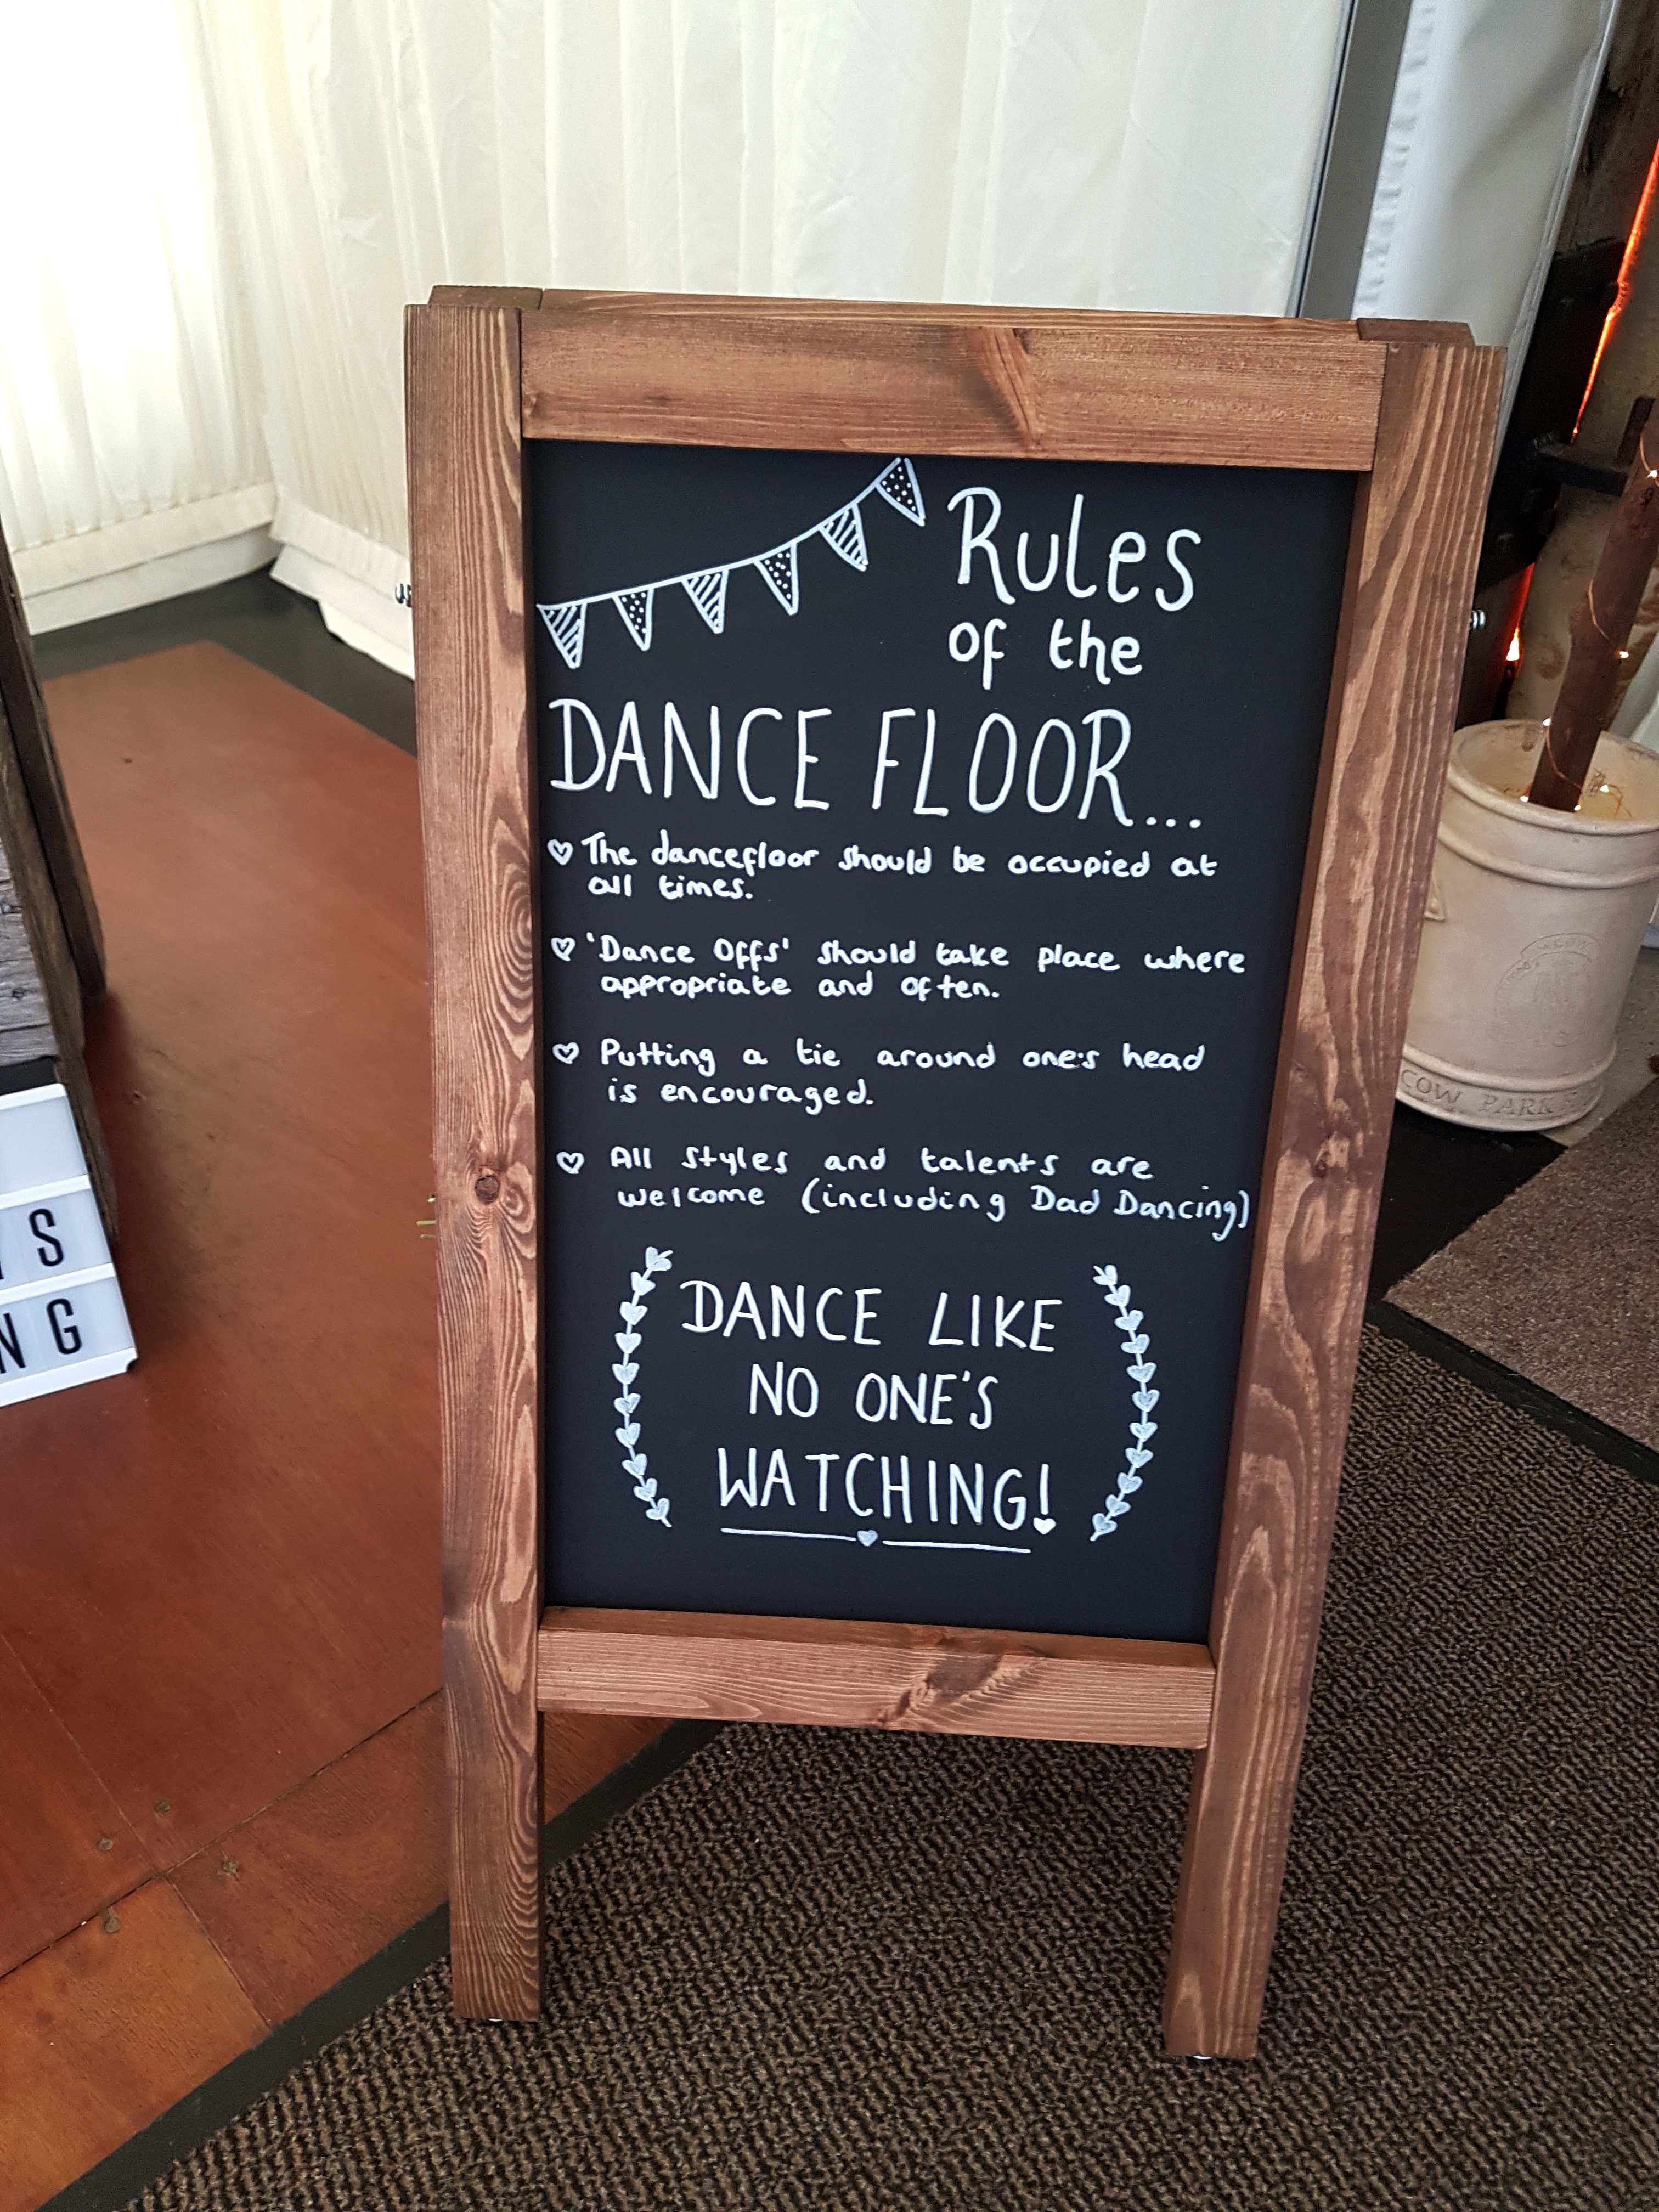 Rules
of the
DANCE FLOOR...
The dancefloor should be occupied at
all times.
'Dance Offs' should take place where
appropriate and often.
Putting a tie around one's head
is encouraged.
All styles and talents are
welcome (including Dad Dancing)
DANCE LIKE
NO ONE'S
WATCHING!
S
NG
COW PARK